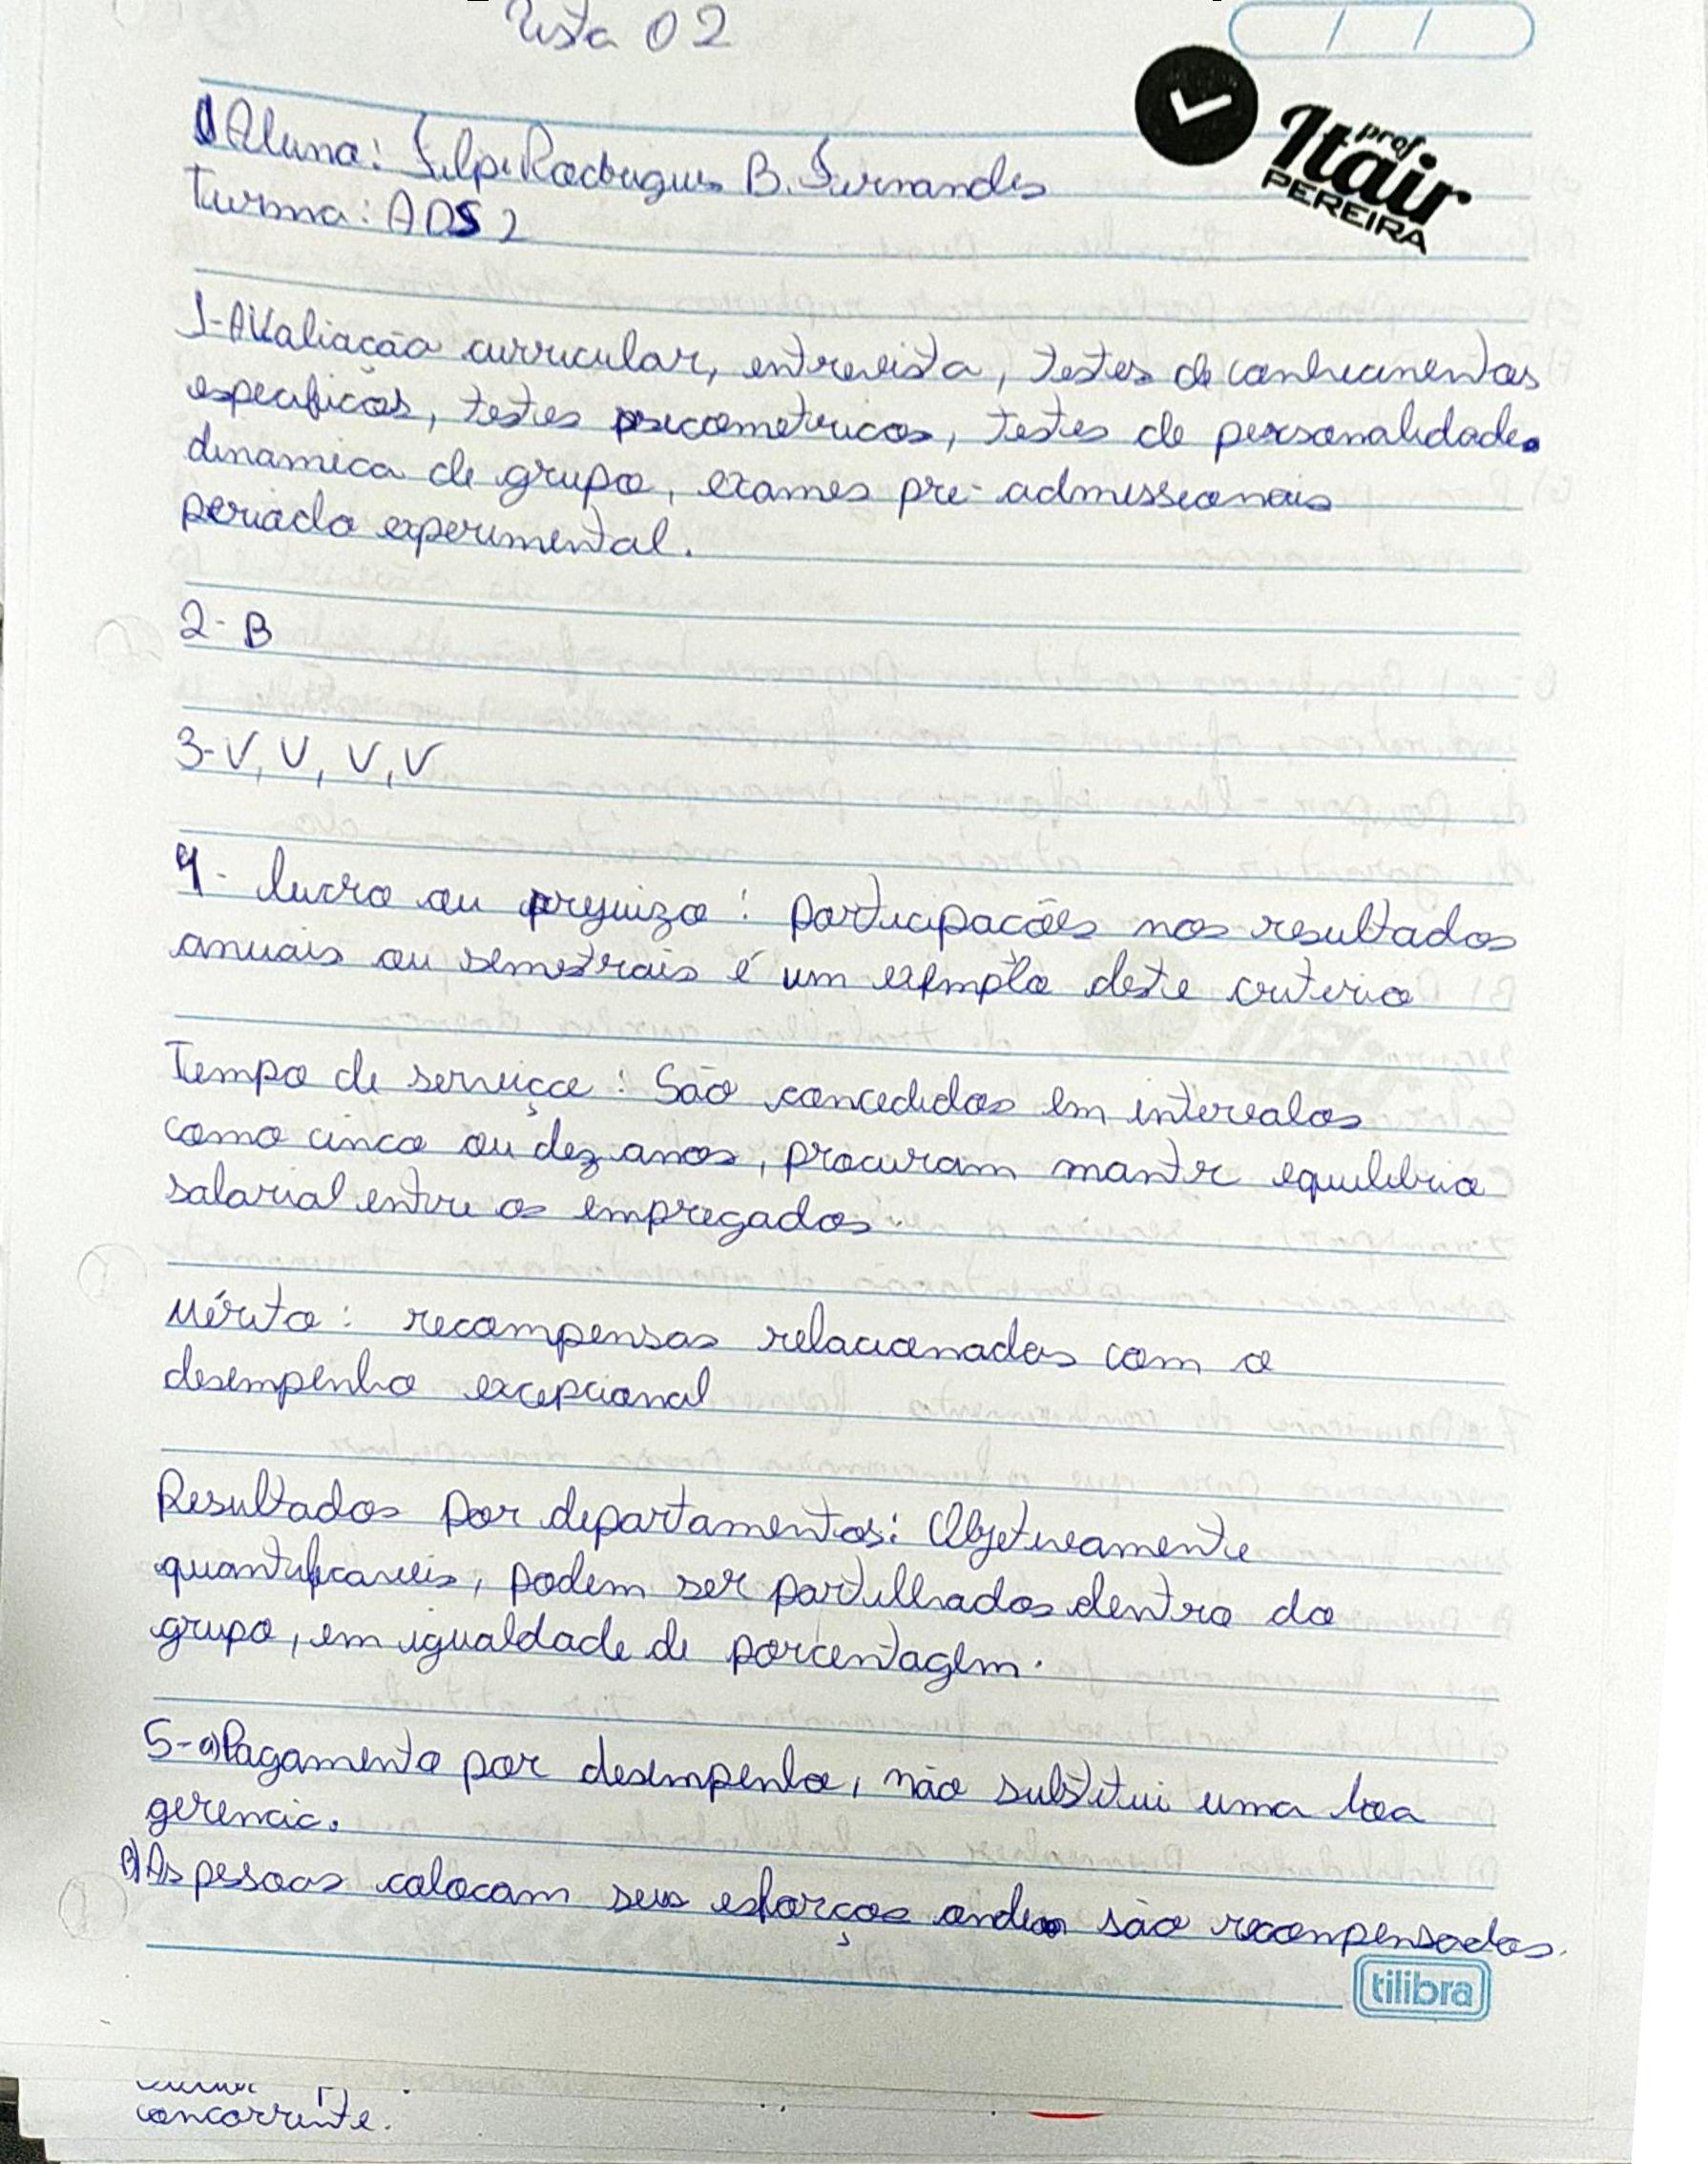 Lista 02
prof
Itair
PEREIRA
Aluno: Felipe Rodrigues B. Fernandes
Turma: ADS 2
1-Avaliação curricular, entrevista, testes de conhecimentos
especificos, testes psicometricos, testes de personalidade.
dinamica de grupo, exames pre-admissionais
periodo experimental.
2- B
3-V, V, V, V
4- lucro ou prejuizo: participacões nos resultados
anuais ou semestrais é um exemplo deste criterio
Tempo de serviço: São concedidos em intervalos
como cinco ou dez anos, procuram manter equilibrio
salarial entre os empregados.
Mérito: recompensas relacionadas com o
desempenho excepcional
Resultados por departamentos: Objetivamente
quantificaveis, podem ser partilhados dentro do
grupo, em igualdade de porcentagem.
5-a)Pagamento por desempenho, não substitui uma boa
gerencia.
B)As pessoas colocam seus esforços onde são recompensados.
tilibra
concorrente.